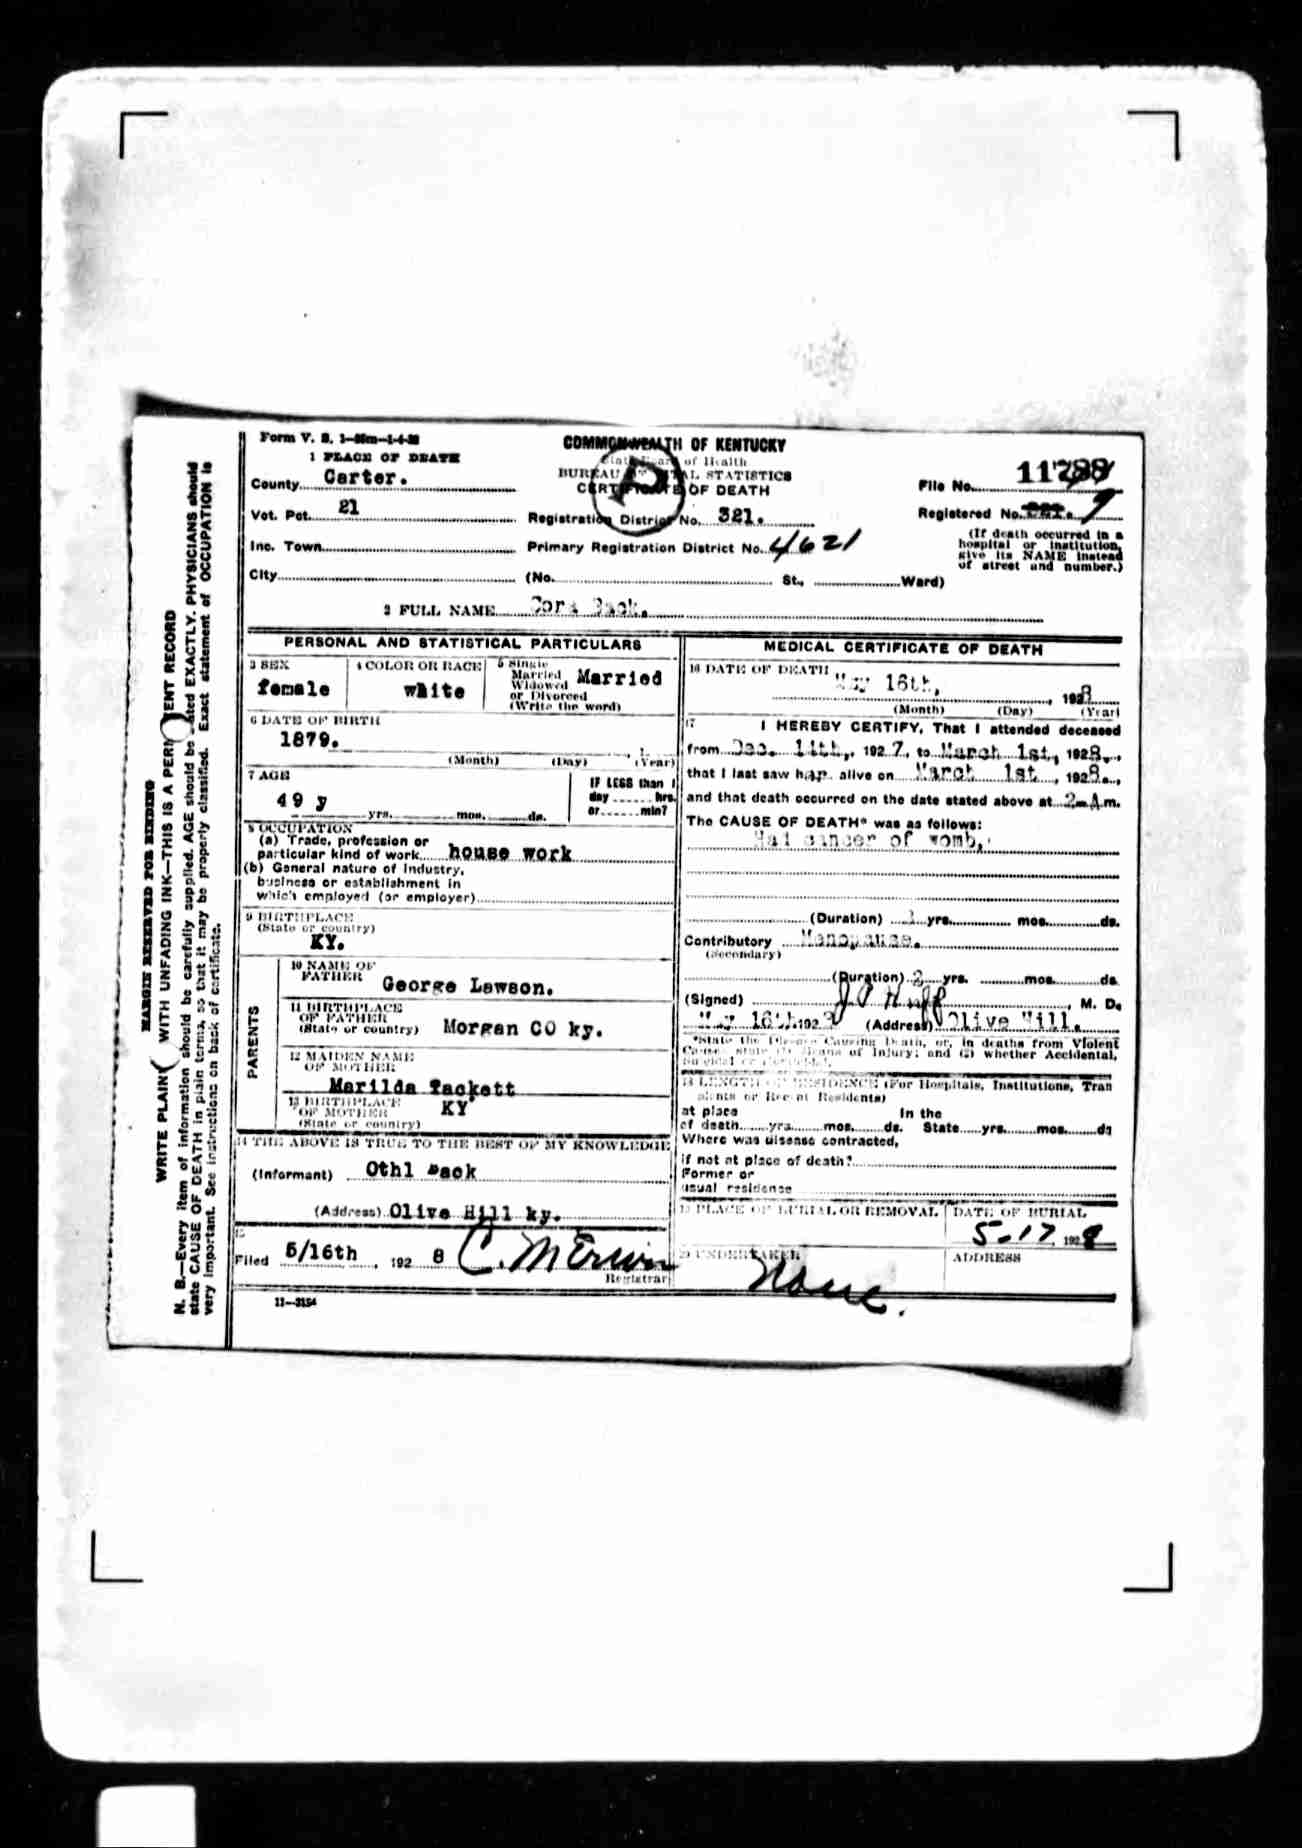 Form V. S. 1
1 PLACE OF DEATH
County Carter.
Vot. Pct. 21
Inc. Town
City
COMMONWEALTH OF KENTUCKY
State Board of Health
BUREAU OF VITAL STATISTICS
CERTIFICATE OF DEATH
Registration District No. 321.
Primary Registration District No. 4621
(No. St., Ward)
File No.
Registered No. 9
(If death occurred in a
hospital or institution,
give its NAME instead
of street and number.)
2 FULL NAME Cora Pack.
PERSONAL AND STATISTICAL PARTICULARS
3 SEX
female
4 COLOR OR RACE
white
5 Single
Married
Widowed
or Divorced
(Write the word)
Married
6 DATE OF BIRTH
1879.
(Month) (Day) (Year)
7 AGE
49 y
yrs. mos. ds.
IF LESS than 1
day hrs.
or min?
8 OCCUPATION
(a) Trade, profession or
particular kind of work house work
(b) General nature of industry,
business or establishment in
which employed (or employer)
9 BIRTHPLACE
(State or country)
KY.
PARENTS
10 NAME OF
FATHER
George Lawson.
11 BIRTHPLACE
OF FATHER
(State or country) Morgan CO ky.
12 MAIDEN NAME
OF MOTHER
Marilda Tackett
13 BIRTHPLACE
OF MOTHER
(State or country)
KY
14 THE ABOVE IS TRUE TO THE BEST OF MY KNOWLEDGE
(Informant) Othl Pack
(Address) Olive Hill ky.
15
Filed 5/16th, 192 8
Registrar
11-3154
MEDICAL CERTIFICATE OF DEATH
16 DATE OF DEATH
May 16th, 1928
(Month) (Day) (Year)
17
I HEREBY CERTIFY, That I attended deceased
from Dec. 14th, 1927, to March 1st, 1928,
that I last saw her alive on March 1st, 1928,
and that death occurred on the date stated above at 2 A m.
The CAUSE OF DEATH* was as follows:
Had cancer of womb,
(Duration) yrs. mos. ds.
Contributory Menopause.
(Secondary)
(Duration) 2 yrs. mos. ds.
(Signed) M. D.
May 16th, 192 (Address) Olive Hill.
*State the Disease Causing Death, or, in deaths from Violent
Causes state (1) Means of Injury; and (2) whether Accidental,
Suicidal or Homicidal.
18 LENGTH OF RESIDENCE (For Hospitals, Institutions, Tran
sients or Recent Residents)
at place In the
of death yrs. mos. ds. State yrs. mos. ds
Where was disease contracted,
if not at place of death?
Former or
usual residence
19 PLACE OF BURIAL OR REMOVAL
DATE OF BURIAL
5-17 1928
20 UNDERTAKER
None.
ADDRESS
MARGIN RESERVED FOR BINDING
WRITE PLAIN WITH UNFADING INK—THIS IS A PERM ENT RECORD
N. B.—Every item of information should be carefully supplied. AGE should be stated EXACTLY. PHYSICIANS should
state CAUSE OF DEATH in plain terms, so that it may be properly classified. Exact statement of OCCUPATION is
very important. See instructions on back of certificate.